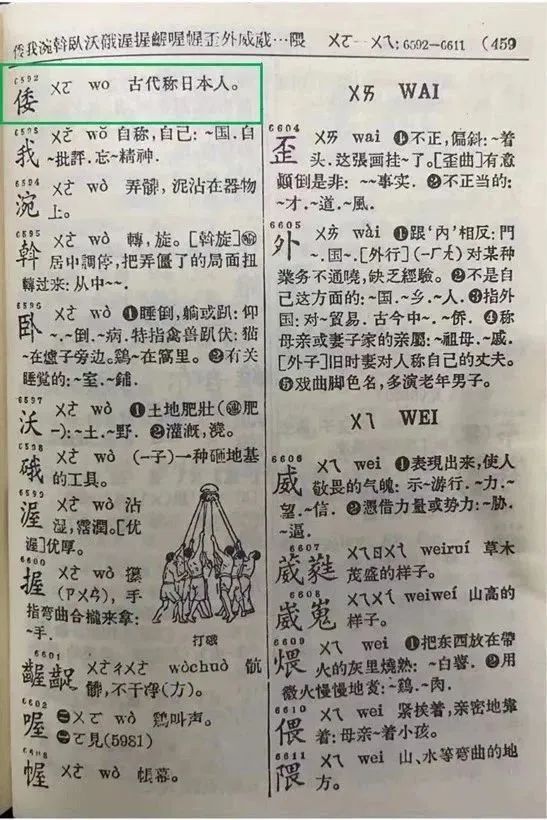 倭我涴斡臥沃硪渥握齷喔幄歪外威葳…隈 ㄨㄛ─ㄨㄟ:6592—6611 (459
6592
倭 ㄨㄛ wo 古代称日本人。
我 ㄨㄛˇ wǒ 自称,自己:~国.自
~批評.忘~精神.
6594
涴 ㄨㄛˋ wò 弄髒,泥沾在器物
上。
6595
斡 ㄨㄛˋ wò 轉,旋。[斡旋]
居中調停,把弄僵了的局面扭
轉过来:从中~~.
6596
卧 ㄨㄛˋ wò ❶睡倒,躺或趴:仰
~.~倒.~病.特指禽兽趴伏:猫
~在爐子旁边。鷄~在窩里。❷有关
睡覚的:~室.~鋪.
6597
沃 ㄨㄛˋ wò ❶土地肥壯(連肥
—):~土.~野. ❷灌漑,澆。
硪 ㄨㄛˋ wò (—子)一种砸地基
的工具。
6599
渥 ㄨㄛˋ wò 沾
湿,霑潤。[优
渥]优厚。
6600
握 ㄨㄛˋ wò 攥
(ㄗㄨㄢˋ),手
指弯曲合攏来拿:
~手.
打硪
6601
齷齪 ㄨㄛˋㄔㄨㄛˋ wòchuò 骯
髒,不干净(方)。
6602
喔 ㊀ㄨㄛ wo 鷄叫声。
㊁ㄛ見(5981)
幄 ㄨㄛˋ wò 帳幕。
ㄨㄞ WAI
6604
歪 ㄨㄞ wai ❶不正,偏斜:~着
头.这張画挂~了。[歪曲]有意
顚倒是非:~~事实. ❷不正当的:
~才.~道.~風.
6605
外 ㄨㄞˋ wài ❶跟‘內’相反:門
~.国~.[外行](—ㄏㄤˊ)对某种
業务不通曉,缺乏經驗。❷不是自
己这方面的:~国.~乡.~人. ❸指外
国:对~貿易.古今中~.~侨. ❹称
母亲或妻子家的亲屬:~祖母.~戚.
[外子]旧时妻对人称自己的丈夫。
❺戏曲脚色名,多演老年男子。
ㄨㄟ WEI
6606
威 ㄨㄟ wei ❶表現出来,使人
敬畏的气魄:示~游行.~力.~
望.~信. ❷憑借力量或势力:~胁.
~逼.
6607
葳蕤 ㄨㄟㄖㄨㄟˊ weiruí 草木
茂盛的样子。
6608
崴嵬 ㄨㄟㄨㄟˊ weiweí 山高的
样子。
6609
煨 ㄨㄟ wei ❶把东西放在帶
火的灰里燒熟:~白薯. ❷用
微火慢慢地煮:~鷄.~肉.
6610
偎 ㄨㄟ wei 紧挨着,亲密地靠
着:母亲~着小孩。
6611
隈 ㄨㄟ wei 山、水等弯曲的地
方。